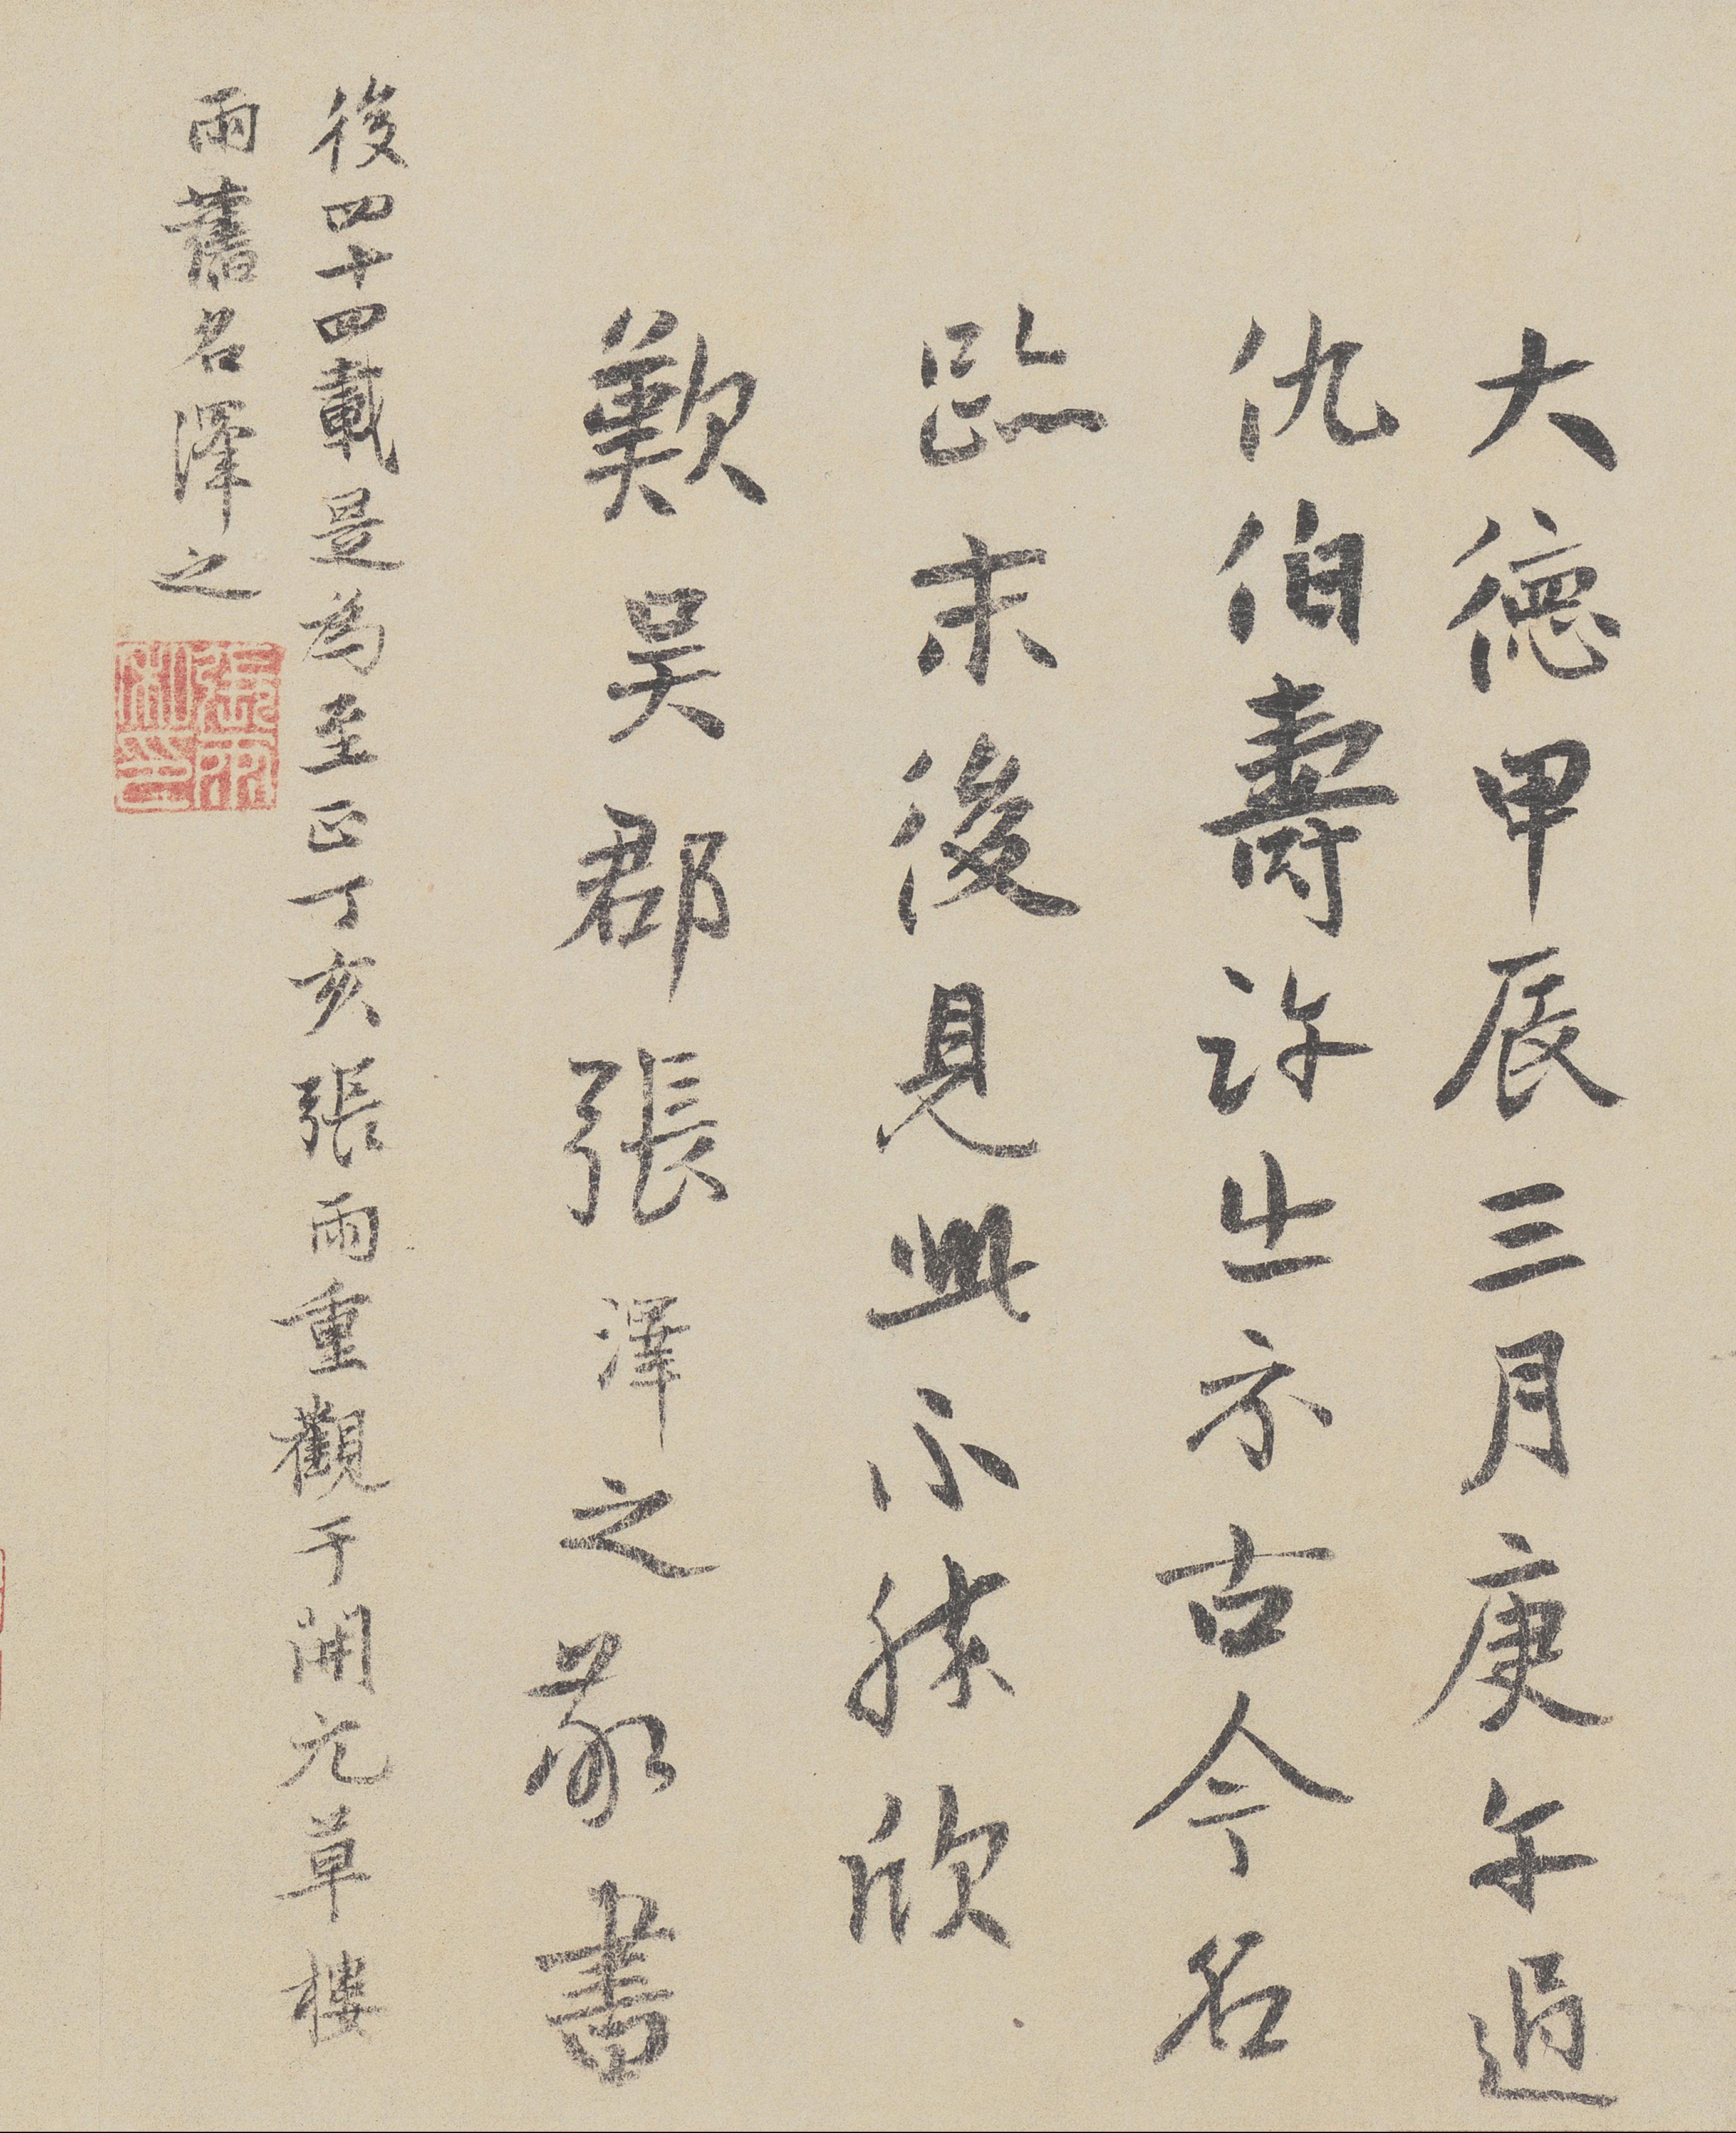 大德甲辰三月庚午過
仇伯壽許出示古今名
蹟末後見此不勝欣
歎吳郡張澤之敬書
後四十四載是為至正丁亥張雨重觀于開元草樓
雨舊名澤之